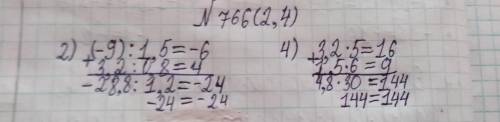 № 766(2,4)
2) (-9) : 1,5 = -6
+ 3,2 : 0,8 = 4
-28,8 : 1,2 = -24
-24 = -24
4) 3,2 · 5 = 16
+ 1,5 · 6 = 9
4,8 · 30 = 144
144 = 144